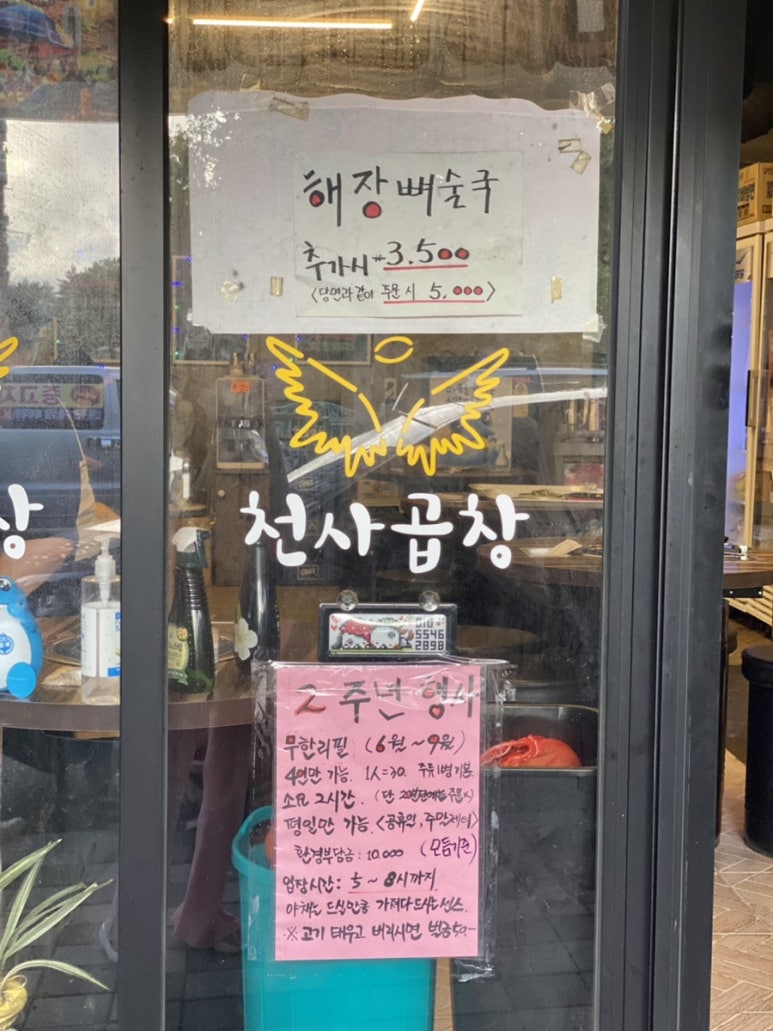 해장뼈술국
추가시 ₩3.500
<당면과 같이 주문 시 5.000>
천사곱창
상
010
5546
2898
2주년 행사
무한리필 (6월~9월)
4인만 가능. 1人=30. 주류1병 기본
소요 2시간. (단 20분전에는 주문x)
평일만 가능 <공휴일, 주말제외>
환경부담금: 10.000 (모듬기준)
입장시간: 5~8시까지
야채는 드실만큼 가져다 드시는 센스.
※ 고기 태우고 버리시면 벌금